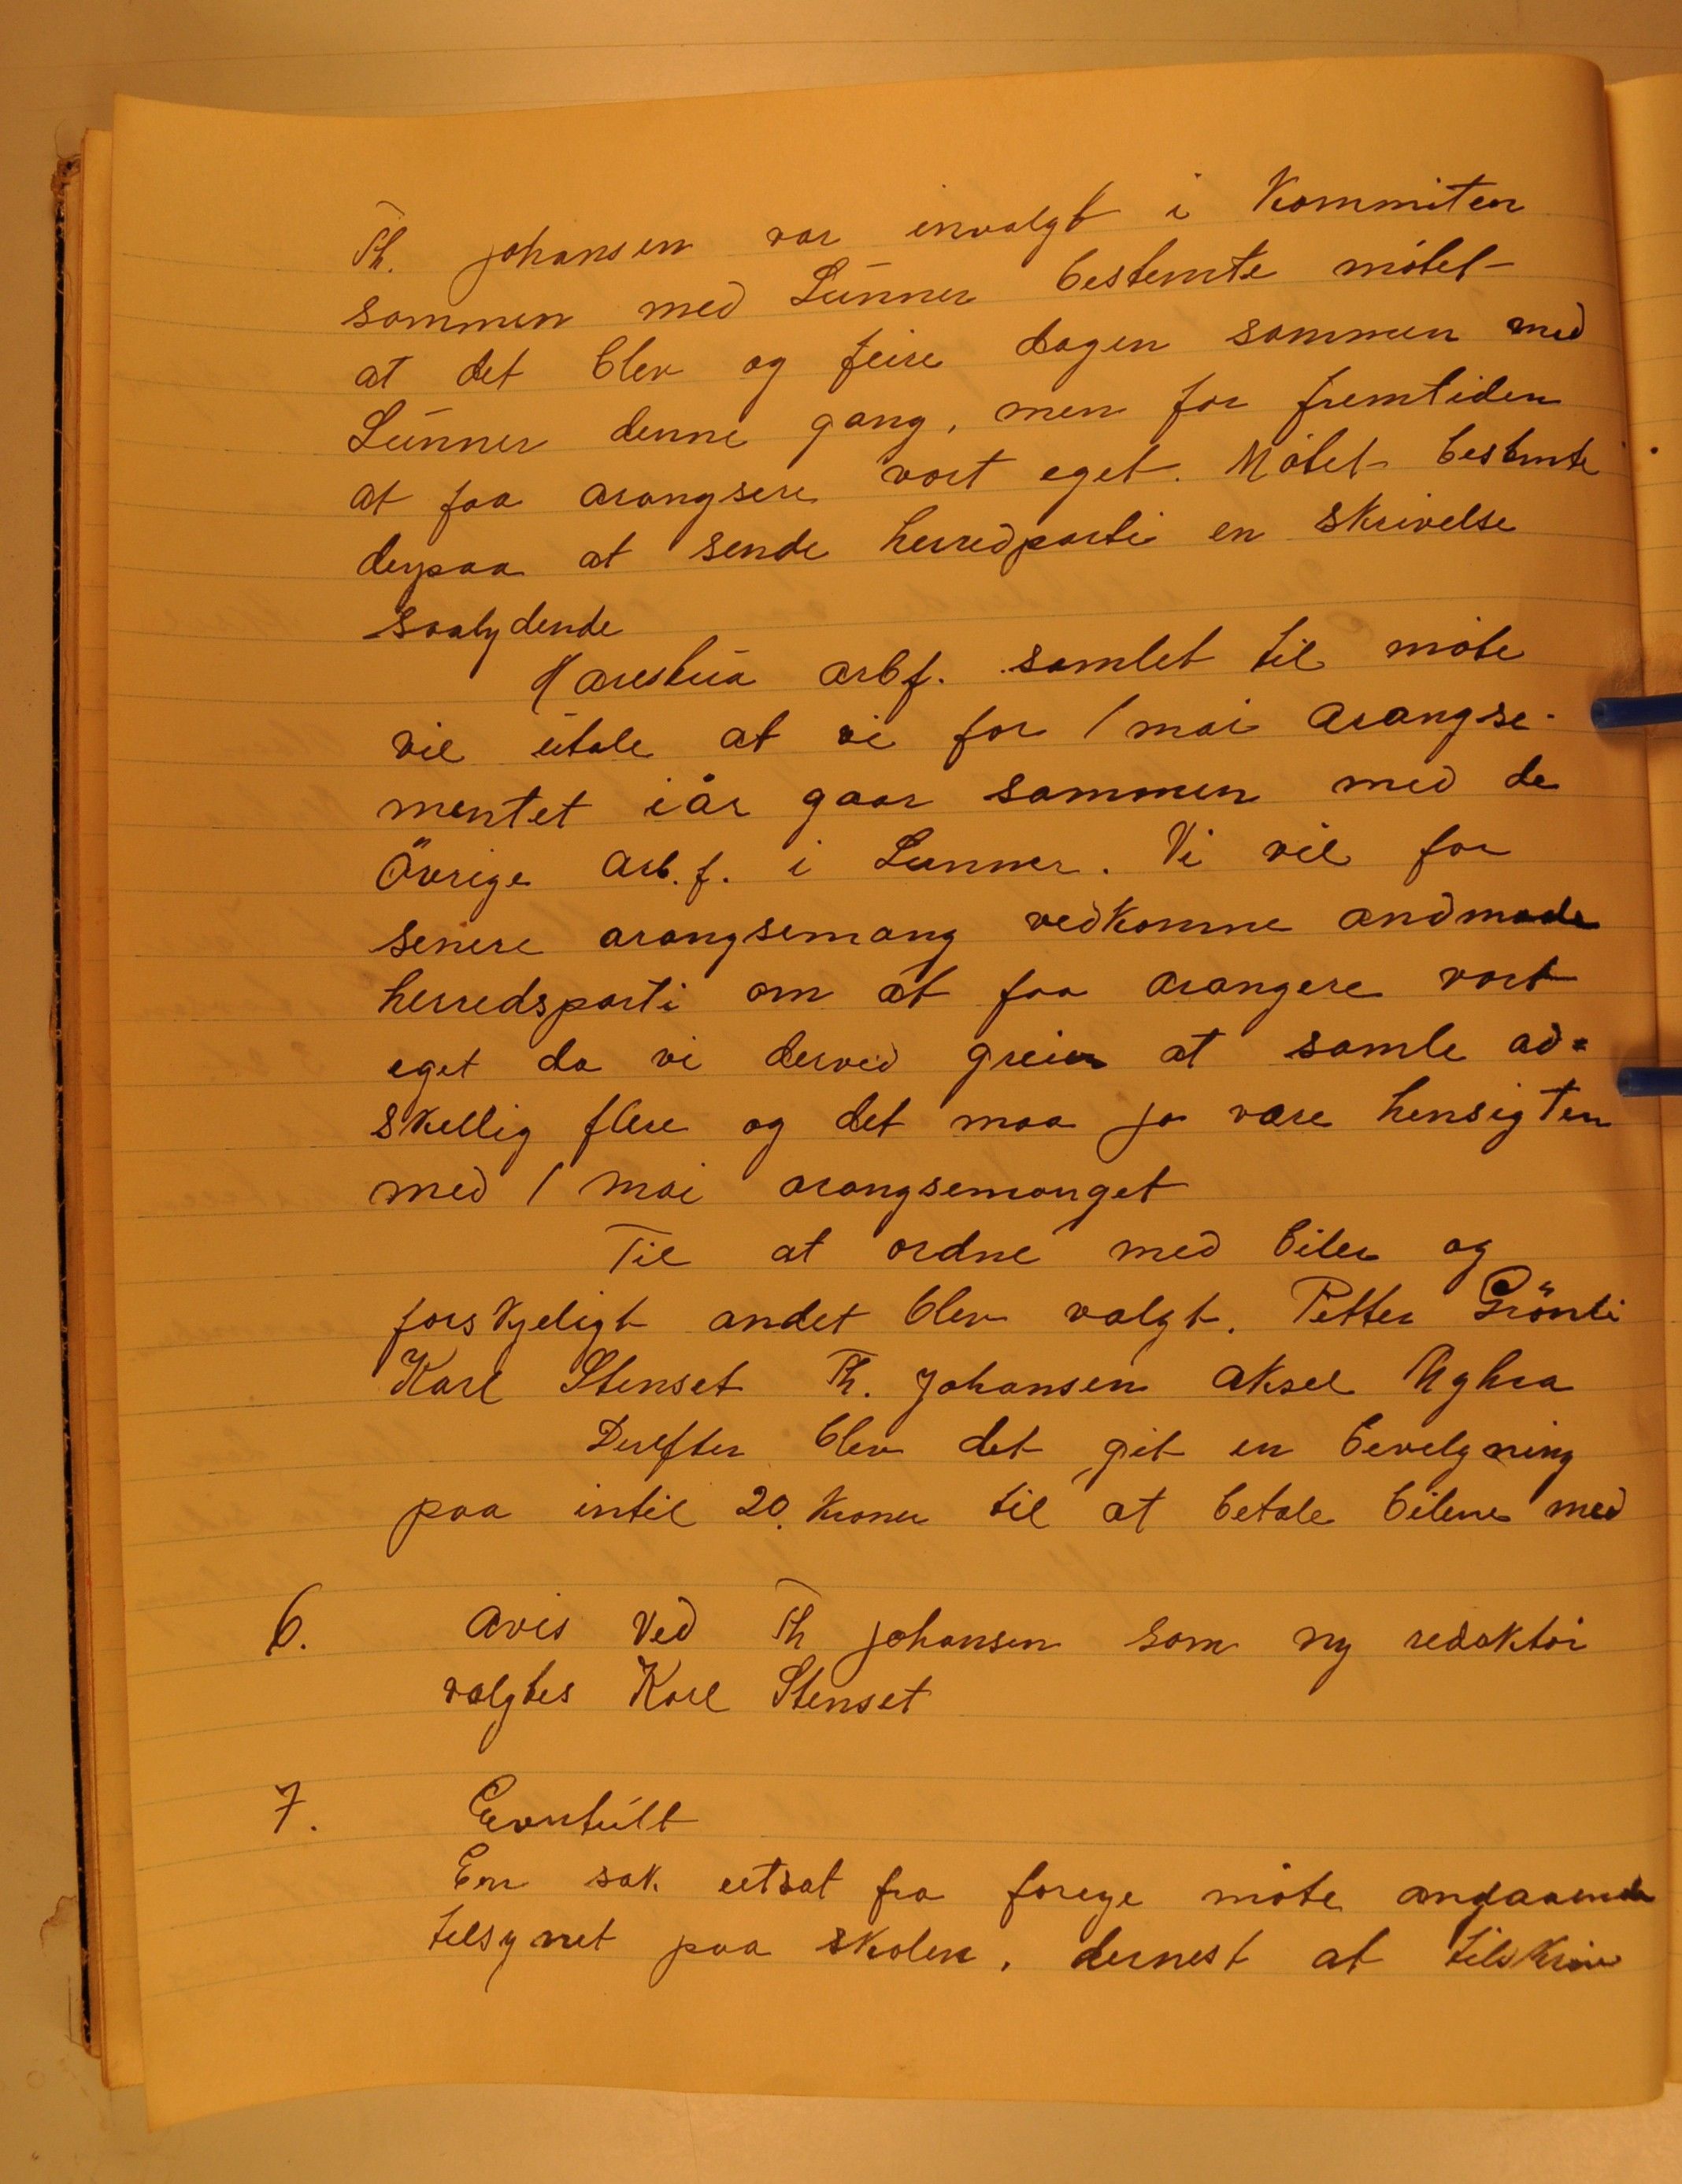 Th. Johansen var invalgt i Kommiten
sammen med Lunner bestemte mötet
at det blev og feire dagen sammen med
Lunner denne gang, men for fremtiden
at faa arangsere vort eget. Mötet bestemte
derpaa at sende herredparti en skrivelse
saalydende
Harestua arbf. samlet til möte
vil utale at vi for 1 mai arangse-
mentet iår gaar sammen med de
Övrige arb.f. i Lunner. Vi vil for
senere arangsemang vedkomne andmode
herredsparti om at faa arangere vort
eget da vi derved greier at samle ad=
skellig flere og det maa jo være hensigten
med 1 mai arangsemanget
Til at ordne med biler og
forskjeligt andet blev valgt. Petter Grönli
Karl Stenset Th. Johansen Aksel
Derefter blev det git en bevelgning
paa intil 20. kroner til at betale bilene med
6. Avis Ved Th Johansen som ny redaktör
valgtes Karl Stenset
7. Eventuelt
En sak utsat fra forege möte angaaende
tilsynet paa skolen, dernest at tilskrive